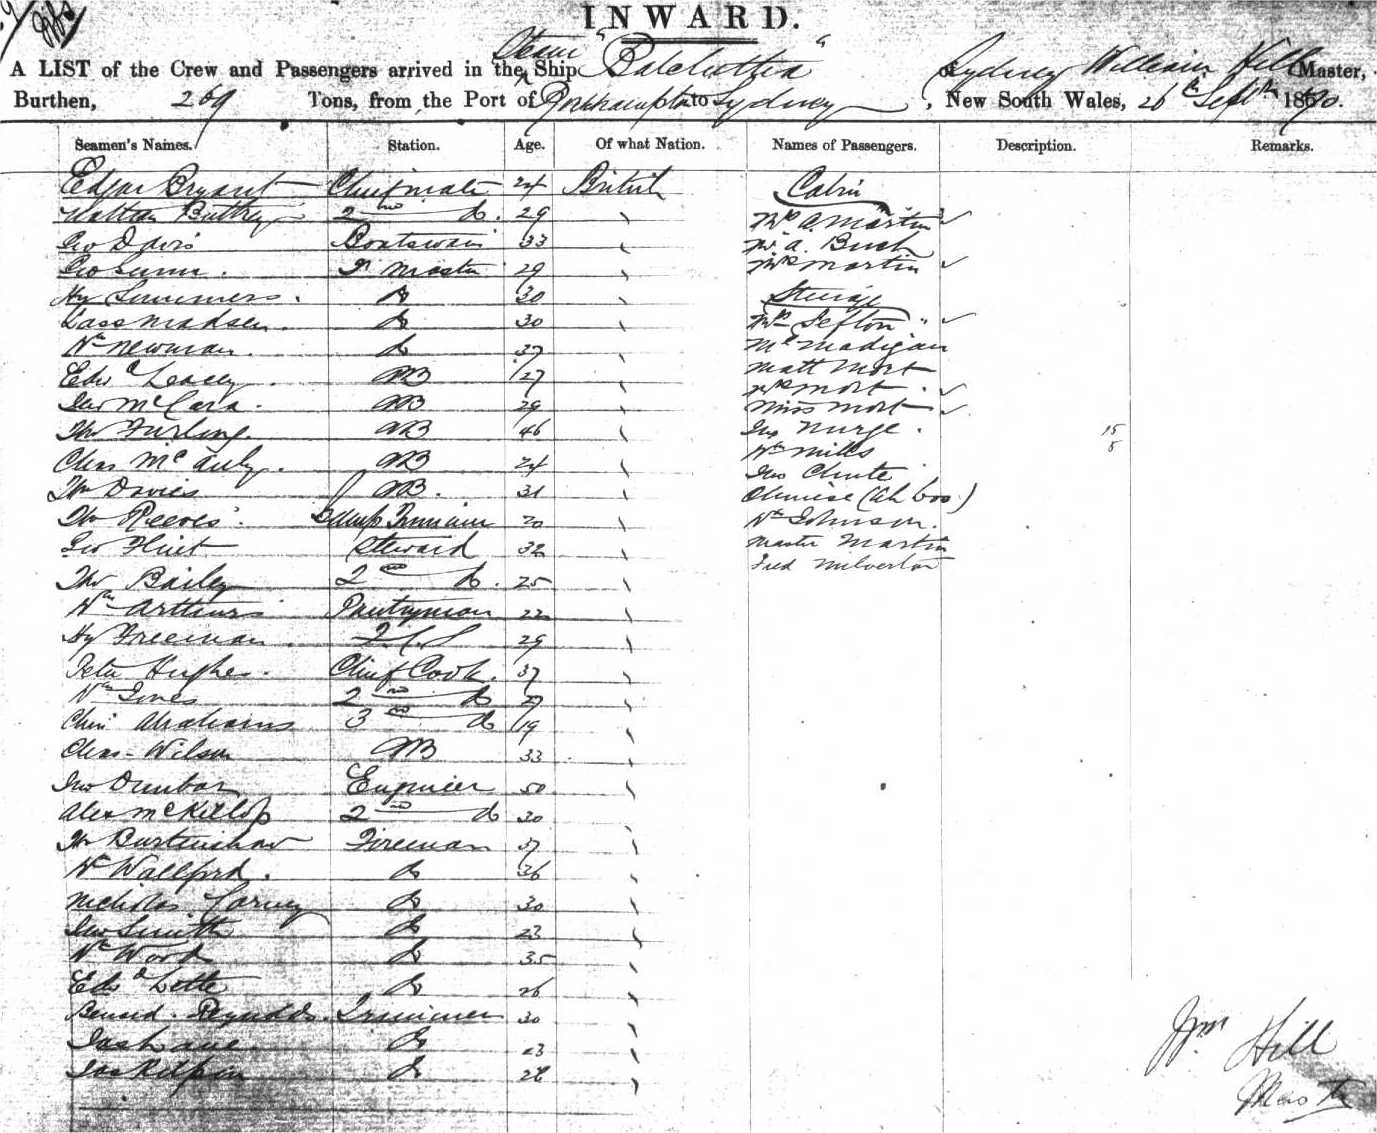 INWARD.
A LIST of the Crew and Passengers arrived in the Steam Ship "Balclutha" of Sydney William Hill Master,
Burthen, 269 Tons, from the Port of Rockhampton to Sydney, New South Wales, 26th Septr 1870.
Seamen's Names. Station. Age. Of what Nation. Names of Passengers. Description. Remarks.
Edgar Bryant Chief mate 24 British Cabin
2nd do. 29 Mrs A. Martin
Geo Davis Boatswain 33 Mr A. Buch
Geo Lunn. Qr Master 29 Mrs Martin
Hy Summers. do 30 Steerage
Lass Madsen. do 30 Mrs Sefton
Wm Newman. do 37 Mr Madigan
Edwd Leacy. AB 27 Matt Mort
Jno McCara. AB 29 Mrs Mort
Thos Furling. AB 46 Miss Mort
Chas McAuly. AB 24 Jno Nurge. 15
Thos Davies AB. 31 Wm Mills 5
Thos Reeves. Lamp Trimmer 20 Jno Chute
Geo Flint Steward 32 Chinese (Ah Coo)
Thos Bailey 2nd do. 25 Wm Johnson.
Wm Arthurs Pantryman 22 Master Martin
Hy Freeman. 29 Fred Milverton
Peter Hughes. Chief Cook. 37
Wm Jones 2nd do 27
Abrahams 3rd do 19
Chas Wilson AB 33
Jno Dunbar Engineer 50
Alex McKillop 2nd do 30
Thos Burtenshaw Fireman 37
Wm Wallford. do 36
Nicholas Carney do 30
Jno Smith do 23
Wm Wood do 35
Edwd Lette do 26
Bernard Reynolds. Trimmer 30
do 23
Jas Kilpin do 28
Wm Hill
Master